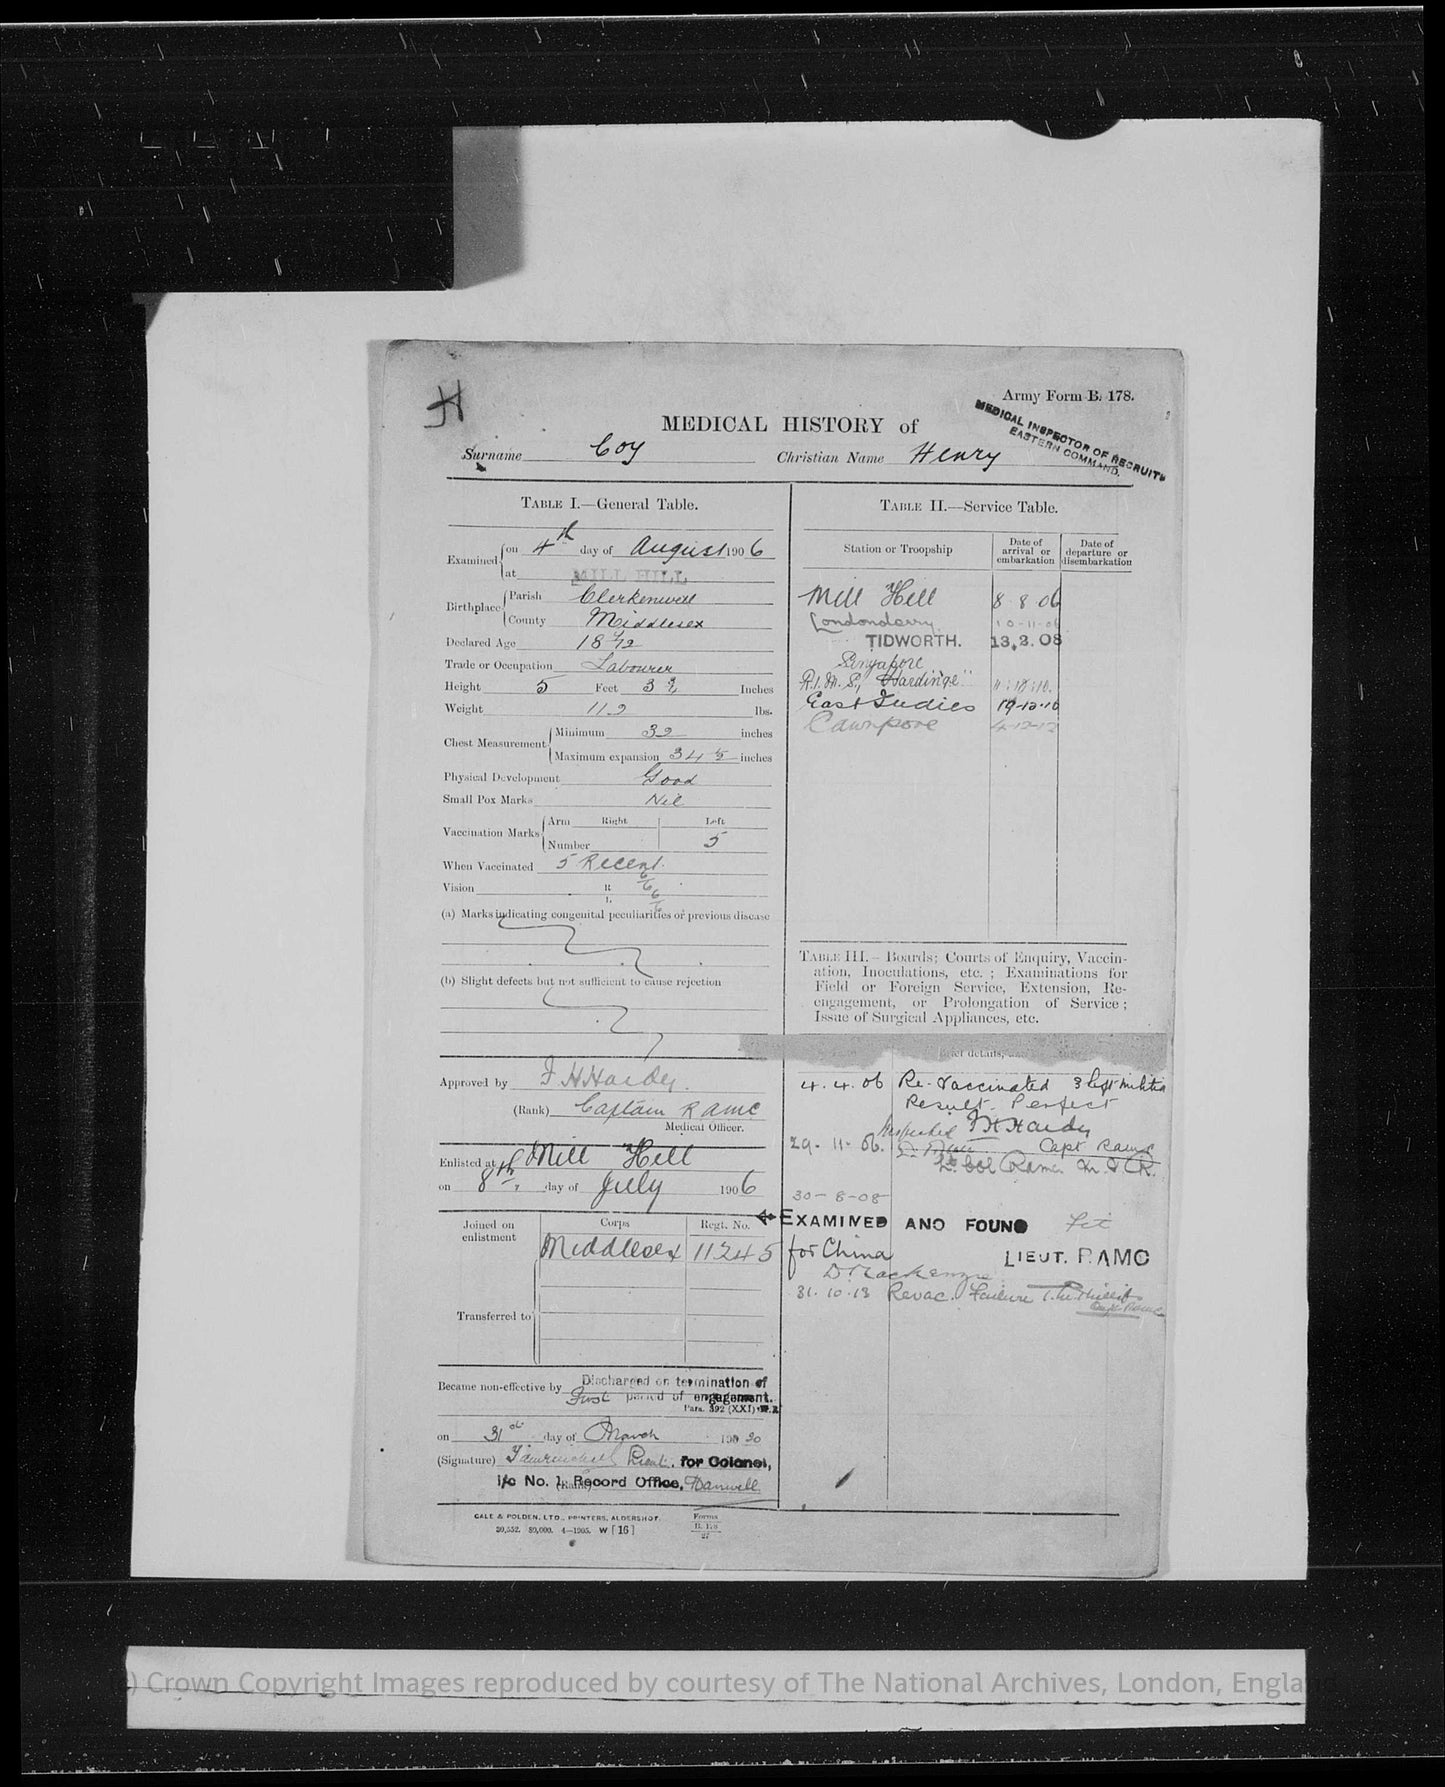 H
Army Form B. 178.
MEDICAL INSPECTOR OF RECRUITS
EASTERN COMMAND.
MEDICAL HISTORY of
Surname Coy Christian Name Henry
TABLE I.—General Table.
Examined on 4th day of August 1906
at MILL HILL
Birthplace Parish Clerkenwell
County Middlesex
Declared Age 18
Trade or Occupation Labourer
Height 5 Feet 3 Inches
Weight 112 lbs.
Chest Measurement Minimum 32 inches
Maximum expansion 34 ½ inches
Physical Development Good
Small Pox Marks Nil
Vaccination Marks Arm Right Left
Number 5
When Vaccinated 5 Recent
Vision R 6/6
L 6/6
(a) Marks indicating congenital peculiarities or previous disease
(b) Slight defects but not sufficient to cause rejection
Approved by J H Hardy.
(Rank) Captain RAMC
Medical Officer.
Enlisted at Mill Hill
on 8th day of July 1906
Joined on enlistment Corps Regt. No.
Middlesex 11245
Transferred to
Became non-effective by Discharged on termination of
First period of engagement.
Para. 392 (XXI)
on 31st day of March 20
(Signature) Lieut. for Colonel,
i/c No. 1 Record Office, Hanwell
GALE & POLDEN, LTD., PRINTERS, ALDERSHOT.
20,552. 80,000. 4—1905. W [16]
Forms
B. 178
27
TABLE II.—Service Table.
Station or Troopship
Date of arrival or embarkation
Date of departure or disembarkation
Mill Hill 8 8 06
Londonderry 10-11-06
TIDWORTH. 13.2.08
Singapore
R.I.M.S. "Hardinge"
East Indies 19-12-10
Cawnpore 4-12-12
TABLE III.—Boards; Courts of Enquiry, Vaccin-
ation, Inoculations, etc.; Examinations for
Field or Foreign Service, Extension, Re-
engagement, or Prolongation of Service;
Issue of Surgical Appliances, etc.
Brief details,
4.4.06 Re-Vaccinated 3 left militia
Result Perfect
J H Hardy
Capt RAMC
29-11-06. Inspected
Lt Col RAMC
30-8-08
EXAMINED AND FOUND Fit
for China LIEUT. RAMC
D Mackenzie
31.10.13 Revac. Failure
Capt RAMC
) Crown Copyright Images reproduced by courtesy of The National Archives, London, Englan